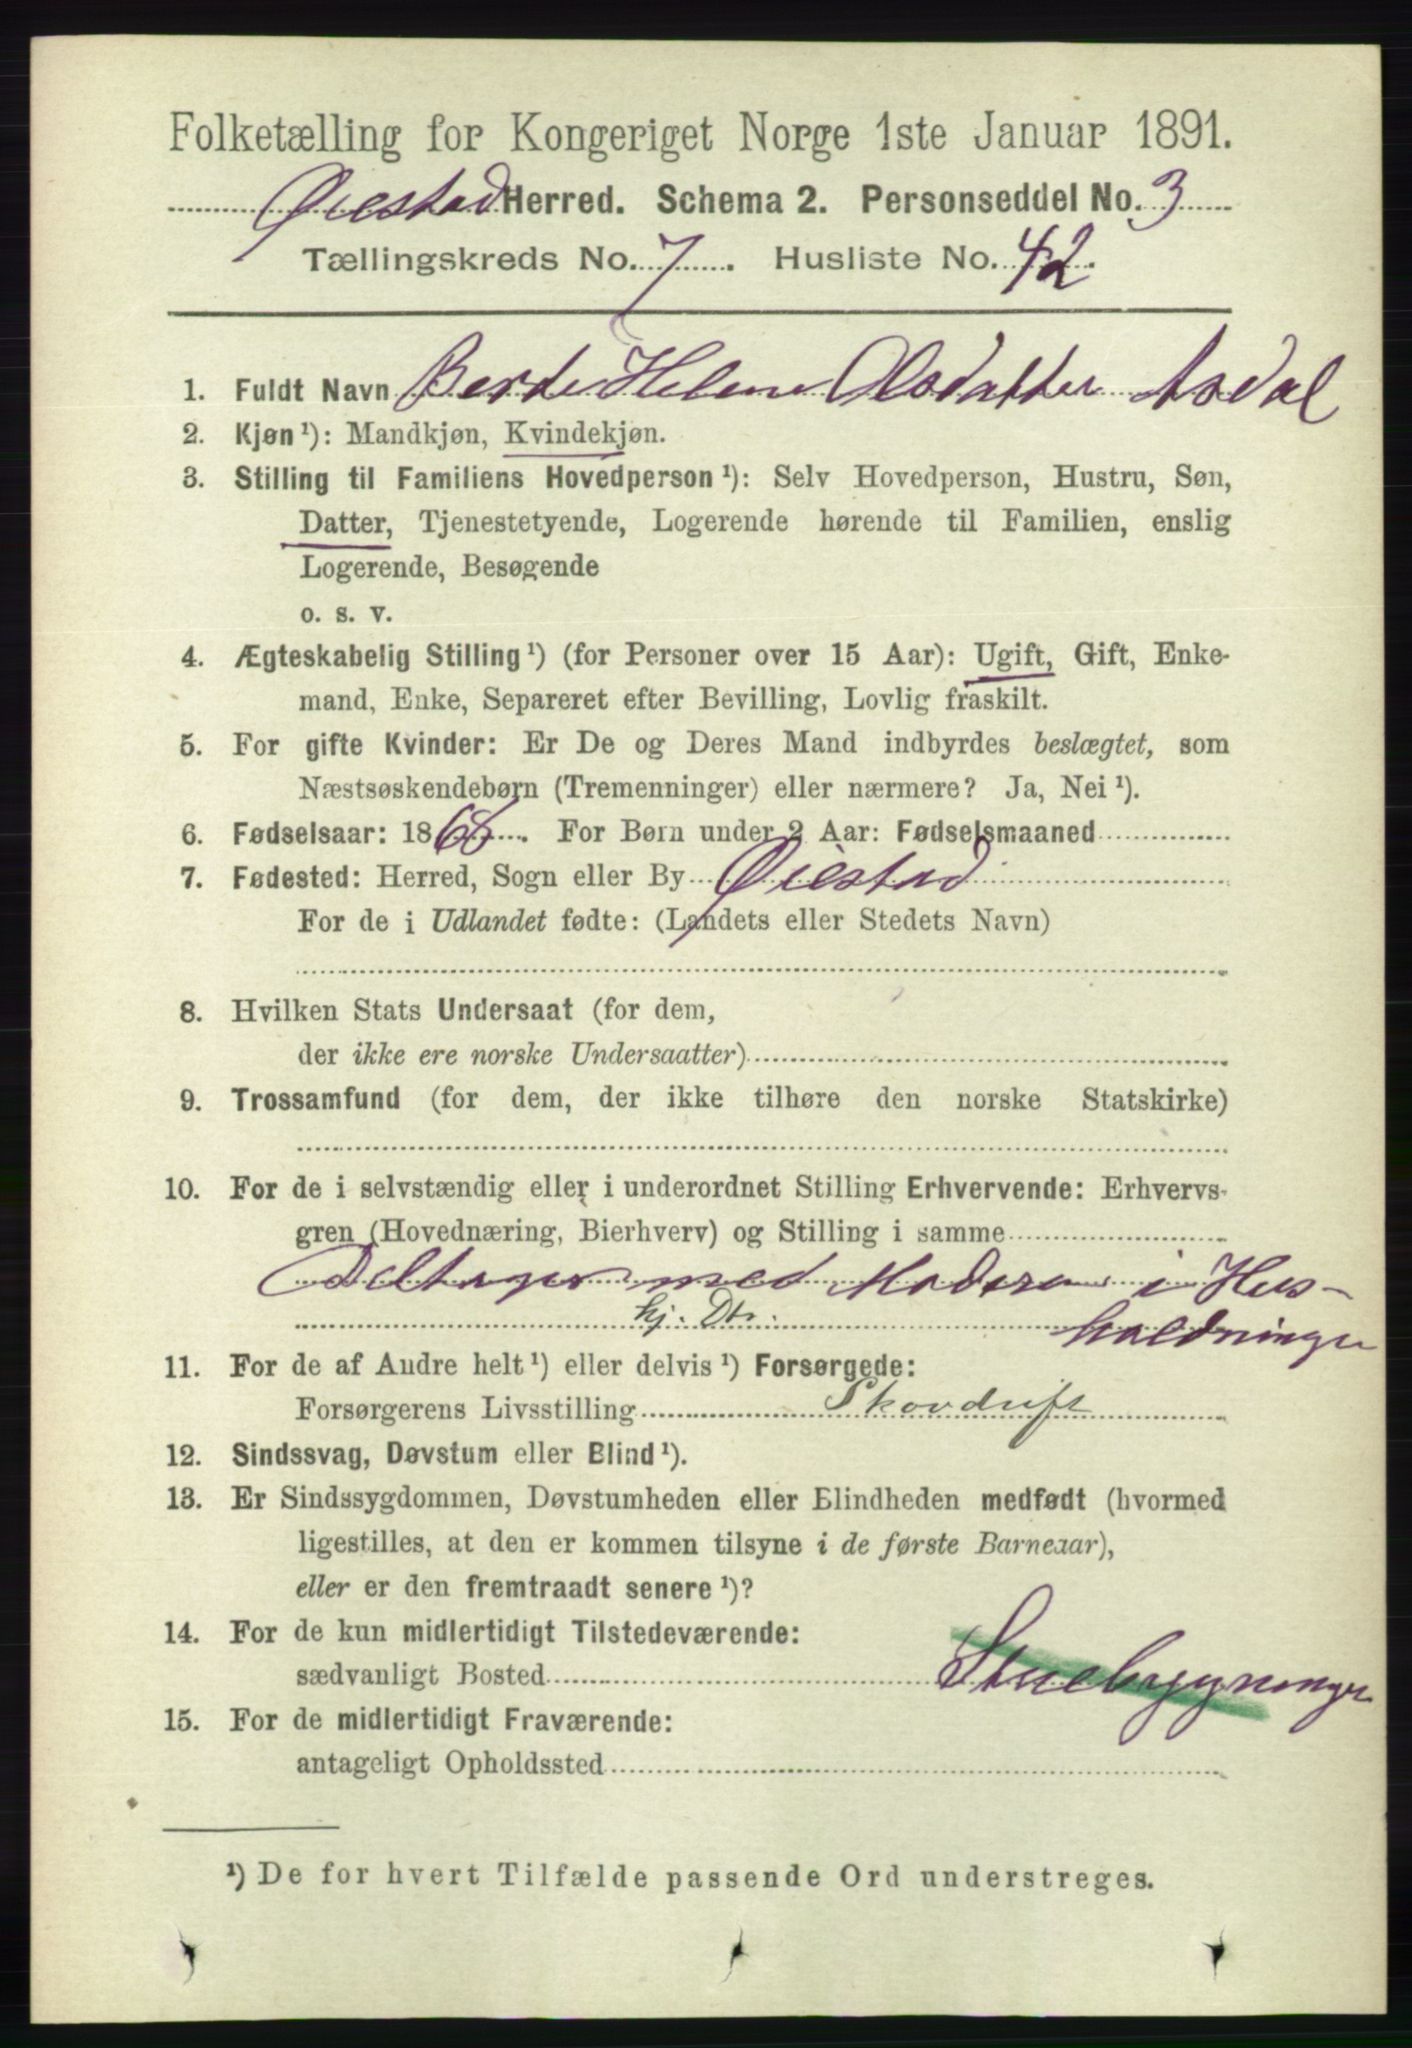 Folketælling for Kongeriget Norge 1ste Januar 1891.
Øiestad Herred. Schema 2. Personseddel No. 3
Tællingskreds No. 7. Husliste No. 42.
1. Fuldt Navn Berte Helene Olsdatter Asdal
2. Kjøn ¹): Mandkjøn, Kvindekjøn.
3. Stilling til Familiens Hovedperson ¹): Selv Hovedperson, Hustru, Søn,
Datter, Tjenestetyende, Logerende hørende til Familien, enslig
Logerende, Besøgende
o. s. v.
4. Ægteskabelig Stilling ¹) (for Personer over 15 Aar): Ugift, Gift, Enke-
mand, Enke, Separeret efter Bevilling, Lovlig fraskilt.
5. For gifte Kvinder: Er De og Deres Mand indbyrdes beslægtet, som
Næstsøskendebørn (Tremenninger) eller nærmere? Ja, Nei ¹).
6. Fødselsaar: 18 . For Børn under 2 Aar: Fødselsmaaned
7. Fødested: Herred, Sogn eller By Øiestad
For de i Udlandet fødte: (Landets eller Stedets Navn)
8. Hvilken Stats Undersaat (for dem,
der ikke ere norske Undersaatter)
9. Trossamfund (for dem, der ikke tilhøre den norske Statskirke)
10. For de i selvstændig eller i underordnet Stilling Erhvervende: Erhvervs-
gren (Hovednæring, Bierhverv) og Stilling i samme
Deltager med Moderen i Hus-
hj. Dtr. holdningen
11. For de af Andre helt ¹) eller delvis ¹) Forsørgede:
Forsørgerens Livsstilling Skovdrift
12. Sindssvag, Døvstum eller Blind ¹).
13. Er Sindssygdommen, Døvstumheden eller Blindheden medfødt (hvormed
ligestilles, at den er kommen tilsyne i de første Barneaar),
eller er den fremtraadt senere ¹)?
14. For de kun midlertidigt Tilstedeværende:
sædvanligt Bosted Stuebygningen
15. For de midlertidigt Fraværende:
antageligt Opholdssted
¹) De for hvert Tilfælde passende Ord understreges.